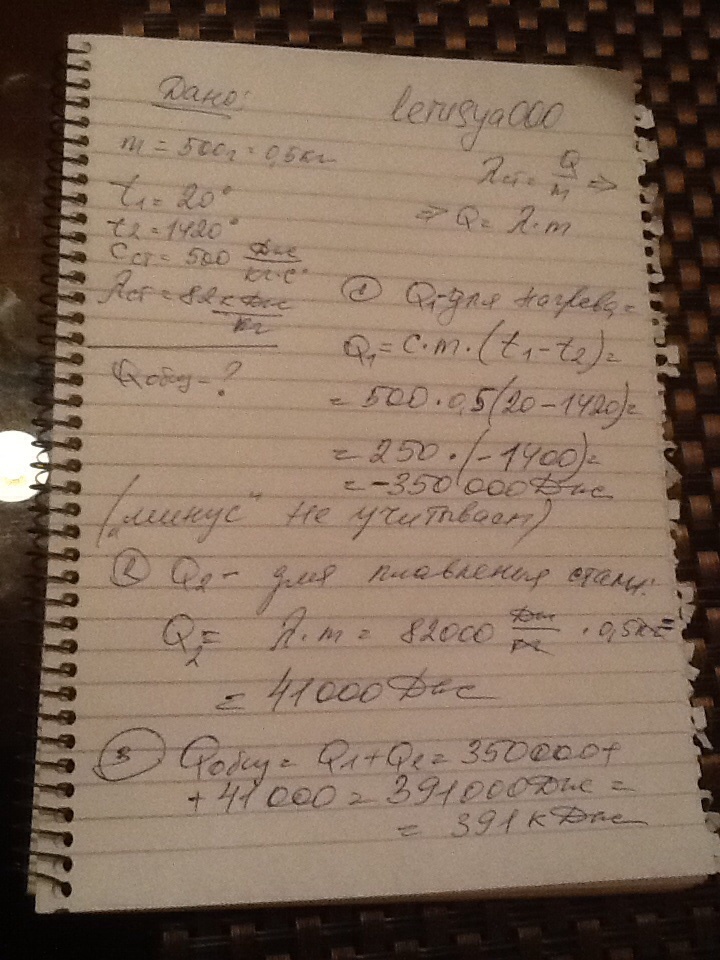 Дано:
lerusya000
m = 500г = 0,5кг
λст = Q/m =>
t1 = 20°
=> Q = λ·m
t2 = 1420°
Cст = 500 Дж/кг·C°
λст = 82 кДж/кг
Qобщ - ?
① Q1 - для нагрева =
Q1 = C·m·(t1-t2) =
= 500·0,5(20-1420) =
= 250·(-1400) =
= -350 000 Дж
("минус" не учитываем)
② Q2 - для плавления стали:
Q2 = λ·m = 82000 Дж/кг · 0,5кг =
= 41000 Дж
③ Qобщ = Q1+Q2 = 350000+
+ 41 000 = 391000 Дж =
= 391 кДж